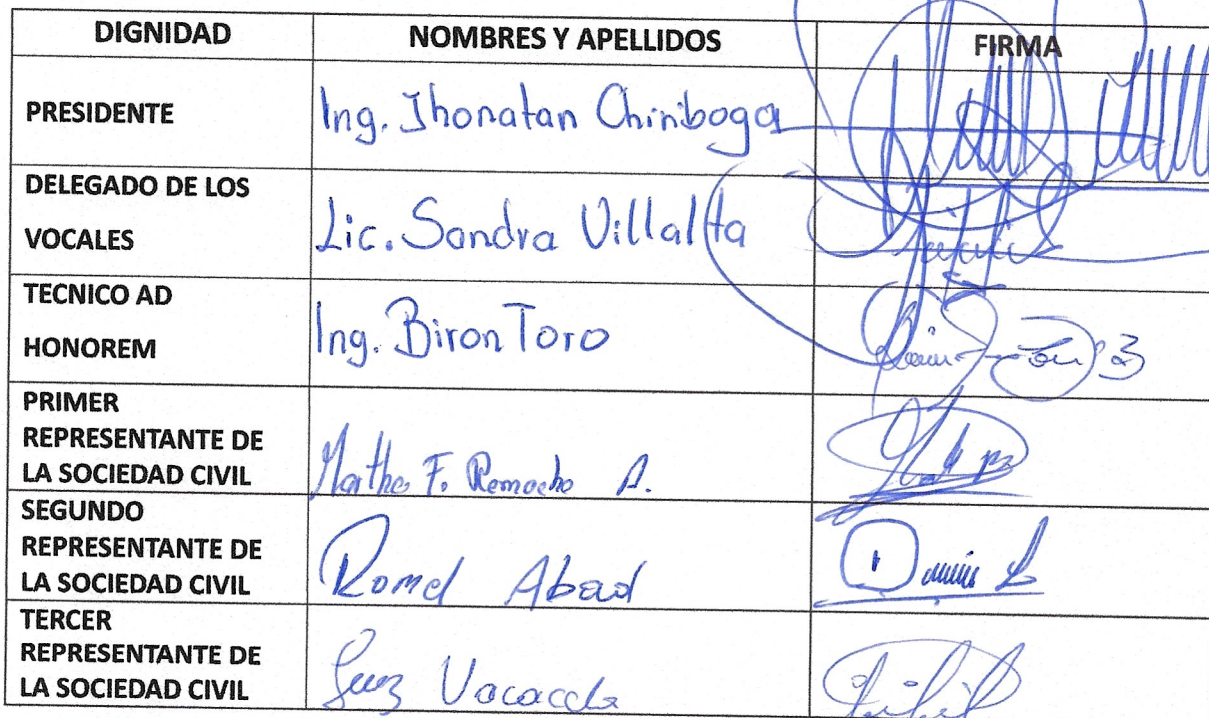 DIGNIDAD NOMBRES Y APELLIDOS FIRMA
PRESIDENTE Ing. Jhonatan Chiriboga
DELEGADO DE LOS
VOCALES Lic. Sandra Villalta
TECNICO AD
HONOREM Ing. Biron Toro
PRIMER
REPRESENTANTE DE
LA SOCIEDAD CIVIL Martha F. Remache A.
SEGUNDO
REPRESENTANTE DE
LA SOCIEDAD CIVIL Romel Abad
TERCER
REPRESENTANTE DE
LA SOCIEDAD CIVIL Luz